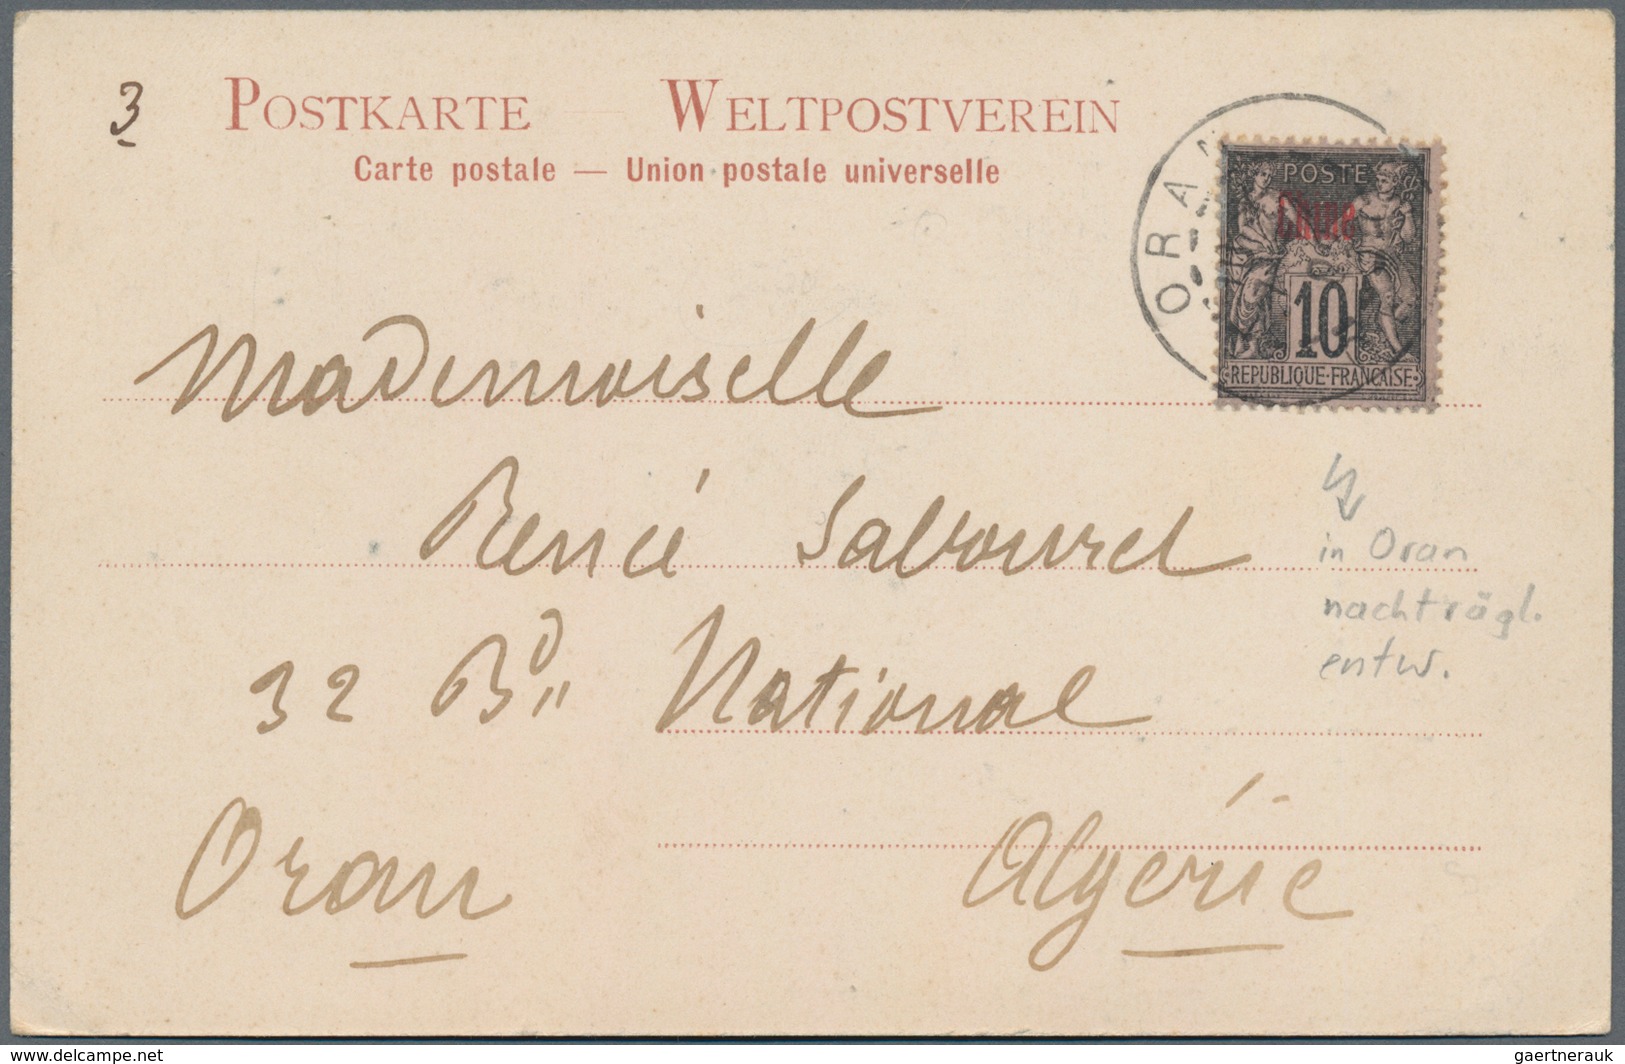 3
POSTKARTE WELTPOSTVEREIN
Carte postale — Union postale universelle
ORAN
POSTE
Chine
10
REPUBLIQUE·FRANÇAISE
Mademoiselle
René Sabourel
in Oran
nachträgl.
entw.
32 Bd National
Oran Algérie
www.delcampe.net
gaertnerauk